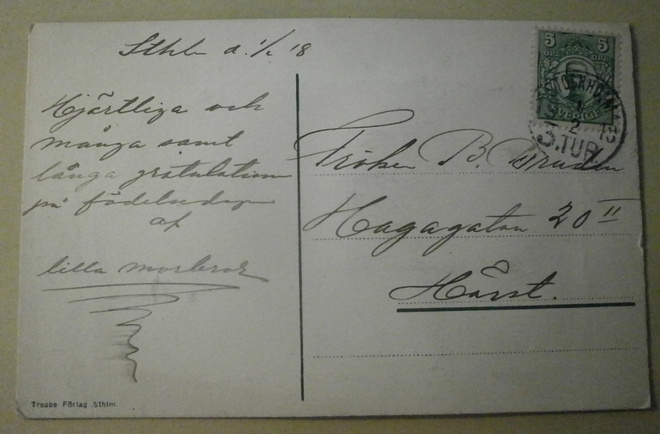 Sthlm d. 1/2 18
Hjärtliga och
många samt
långa gratulationer
på födelsedagen
af
lilla morbror
Fröken B. Bruden
Hagagatan 20 II
Härst.
5 5
SVERIGE
STOCKHOLM 15
1
2
3.TUR
Treabe Förlag Sthlm.